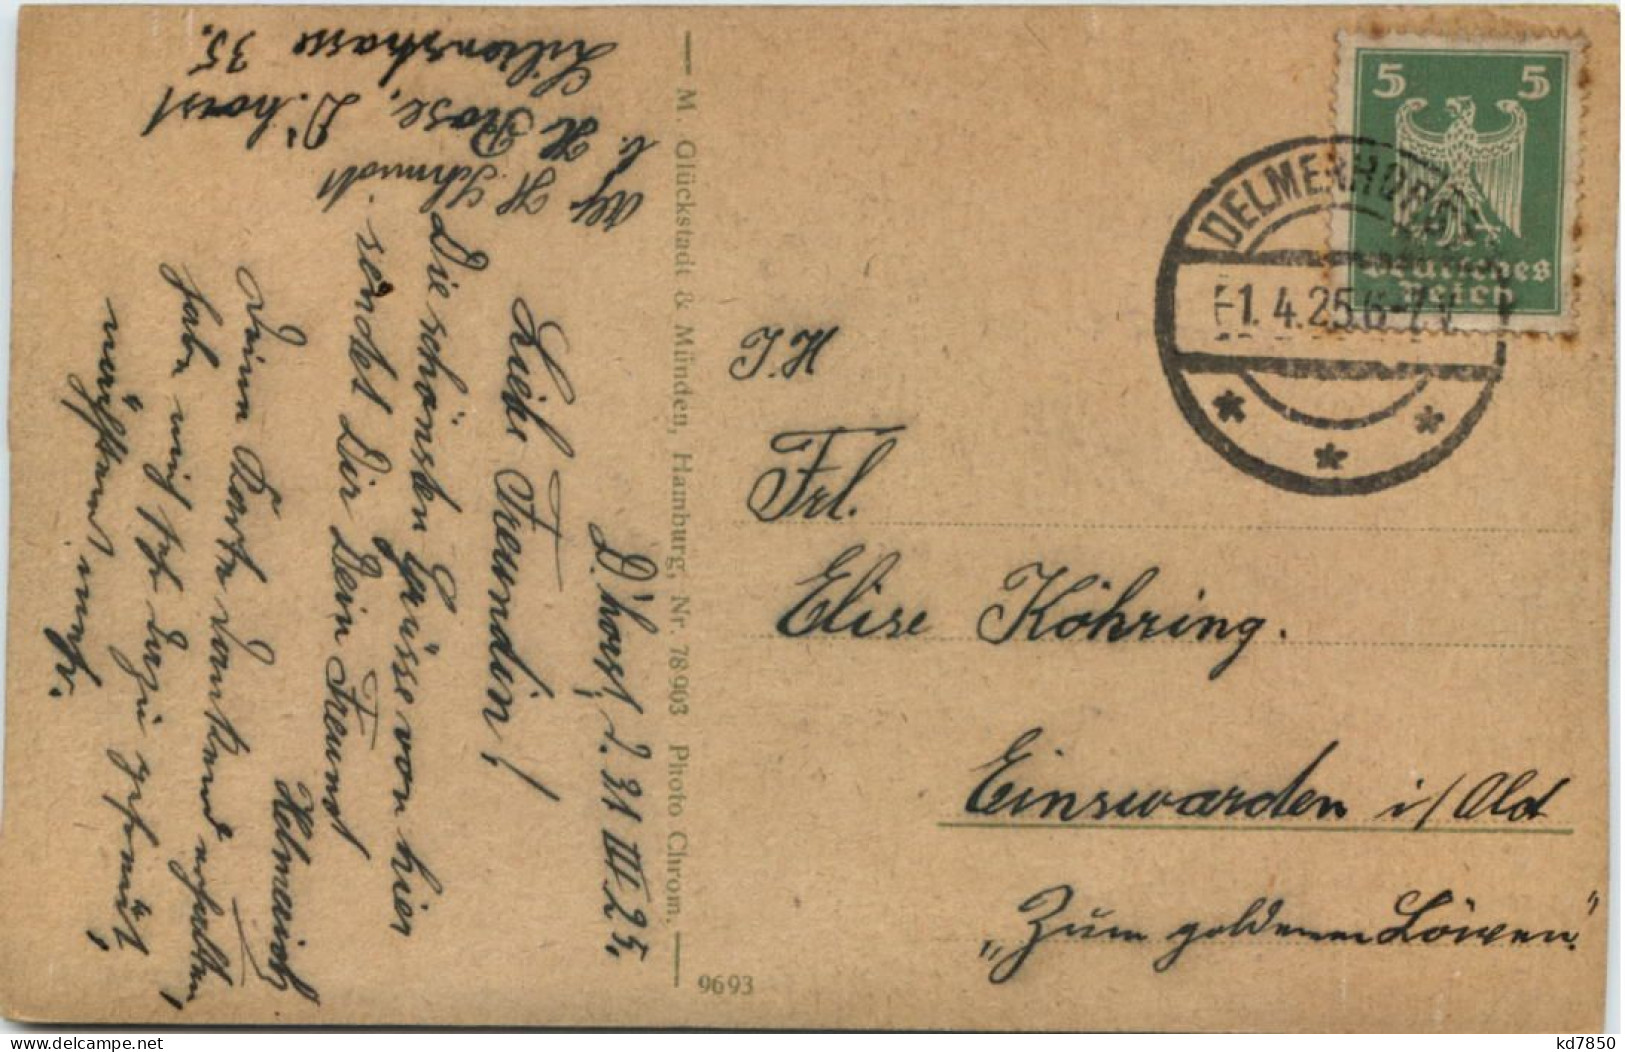 5 5
Deutsches
Reich
DELMENHORST
-1. 4. 25. 6-7 V.
J. H
Frl.
Elise Köhring.
Einswarden i/Old
„Zum goldenen Löwen"
— M. Glückstadt & Münden, Hamburg, Nr. 78903 Photo Chrom. —
9693
D'horst, d. 31 III 25,
Liebe Freundin!
Die schönsten Grüsse von hier
sendet Dir Dein Freund
Helmerich
Deine Karte dankend erhalten,
habe mich sehr dazu gefreut,
nächstens mehr.
H. Schmidt
b. H Rose, D'horst
Lilienstrasse 35.
kd7850